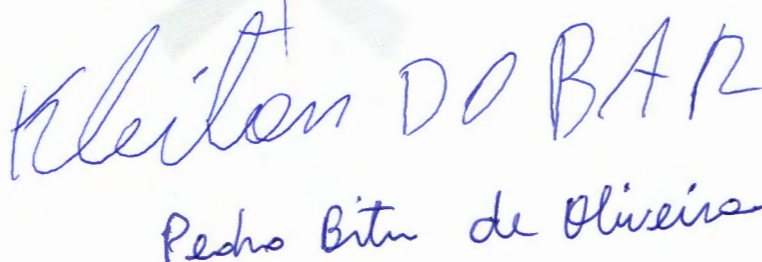 Kleiton DO BAR
Pedro Bitu de Oliveira